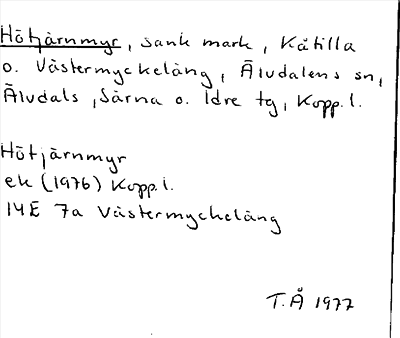 Hötjärnmyr, sank mark, Kåtilla
o. Västermyckeläng, Älvdalens sn,
Älvdals, Särna o. Idre tg, Kopp. l.
Hötjärnmyr
ek (1976) Kopp. l.
14E 7a Västermyckeläng
T.Å 1977